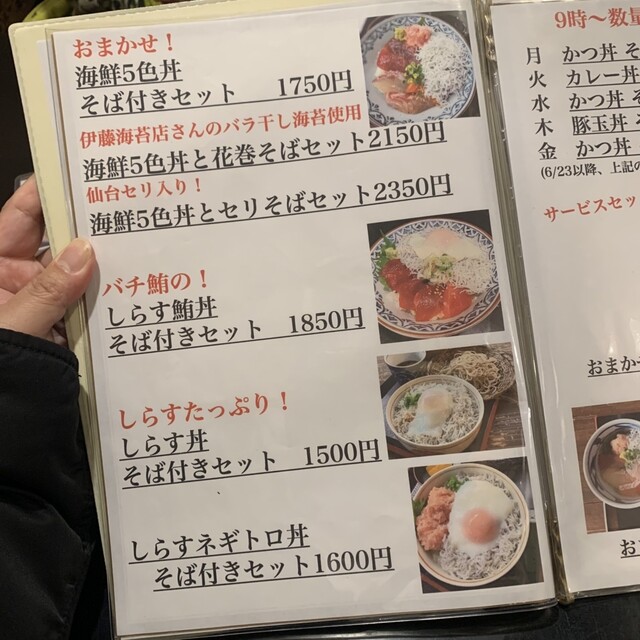 おまかせ！
海鮮5色丼
そば付きセット　1750円
伊藤海苔店さんのバラ干し海苔使用
海鮮5色丼と花巻そばセット2150円
仙台セリ入り！
海鮮5色丼とセリそばセット2350円
バチ鮪の！
しらす鮪丼
そば付きセット　1850円
しらすたっぷり！
しらす丼
そば付きセット　1500円
しらすネギトロ丼
そば付きセット1600円
9時～数量
月　かつ丼 そ
火　カレー丼
水　かつ丼 そ
木　豚玉丼 そ
金　かつ丼
(6/23以降、上記の
サービスセッ
おまか
お